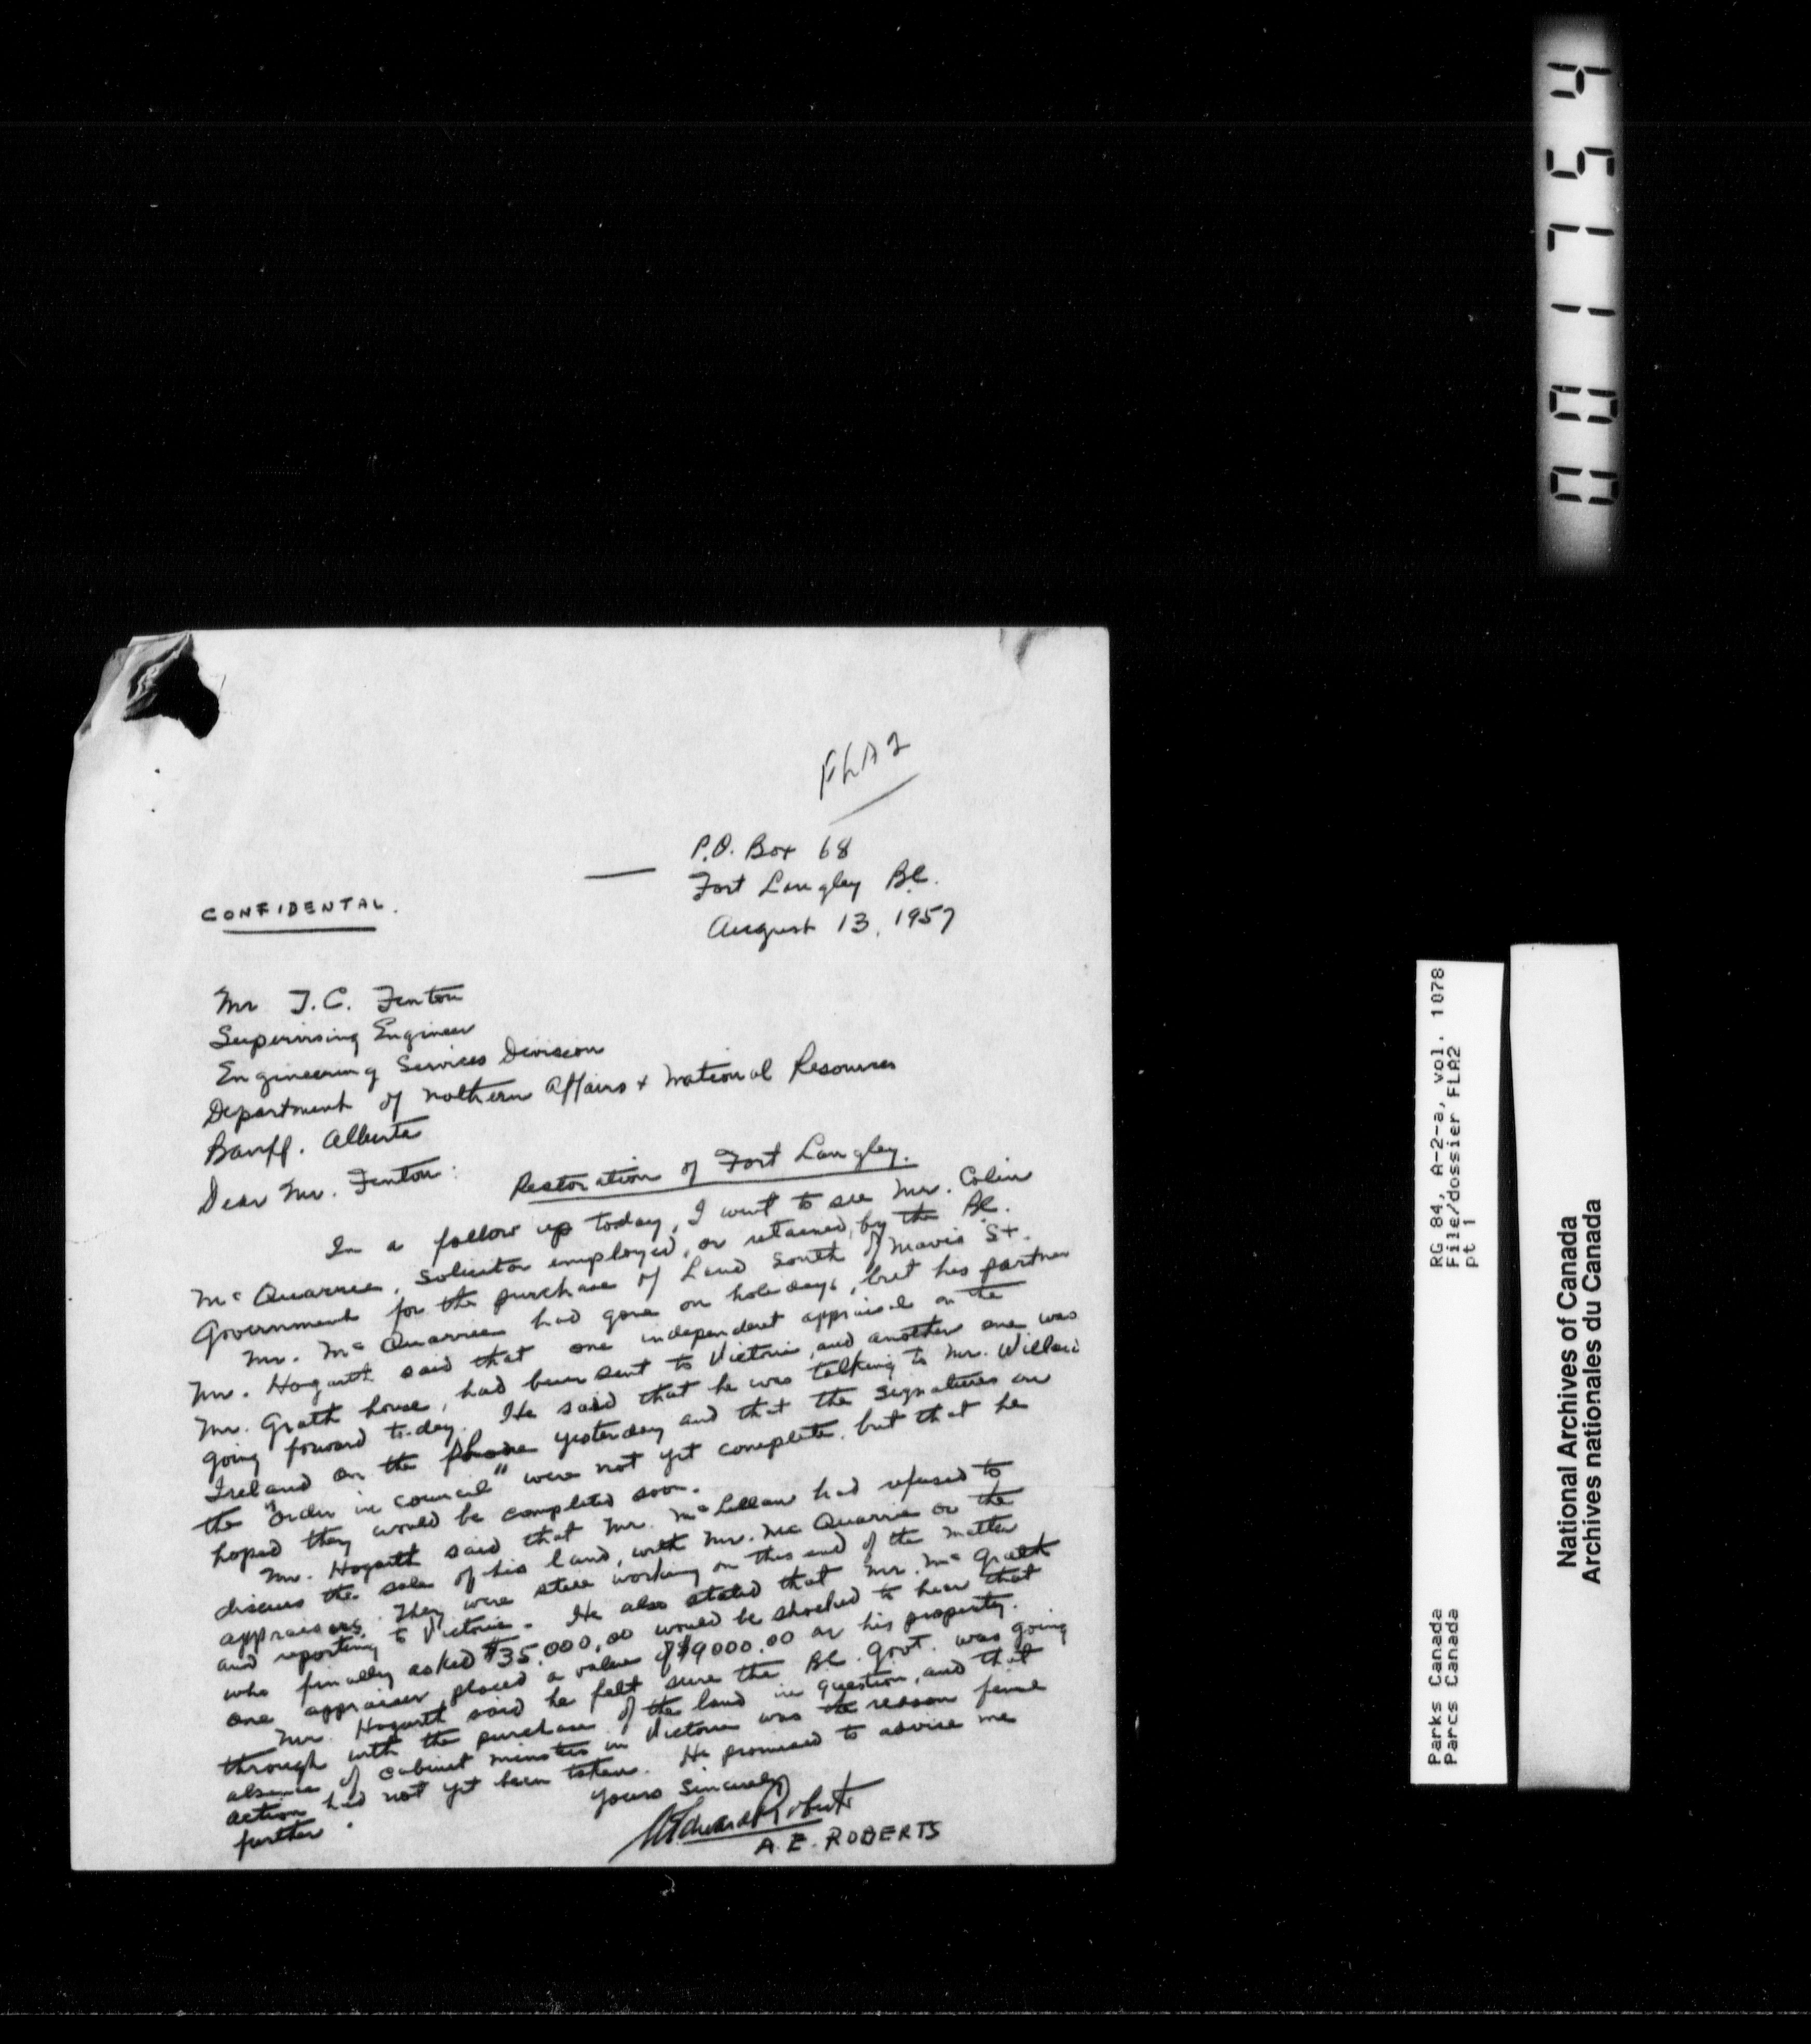 FLA2
P.O. Box 68
Fort Langley B.C.
August 13, 1957
CONFIDENTAL.
Mr T.C. Fenton
Supervising Engineer
Engineering Services Division
Department of Nothern Affairs & National Resources
Banff. Alberta
Dear Mr. Fenton:
Restoration of Fort Langley.
In a follow up today, I went to see Mr. Colin
McQuarrie, solicitor employed, or retained, by the B.C.
Government for the purchase of Land South of Mavis St.
Mr. McQuarrie had gone on holidays, but his partner
Mr. Hogarth said that one independent appraisal on the
Mr. Grath house, had been sent to Victoria, and another one was
going forward to-day. He said that he was talking to Mr. Willard
Ireland on the phone yesterday and that the signatures on
the "order in council" were not yet complete, but that he
hoped they would be completed soon.
Mr. Hogarth said that Mr. McLellan had refused to
discuss the sale of his land, with Mr. Mc Quarrie or the
appraisers. They were still working on this end of the matter
and reporting to Victoria. He also stated that Mr. McGrath
who finally asked $35,000.00 would be shocked to hear that
one appraiser placed a value of $9000.00 on his property.
Mr. Hogarth said he felt sure the B.C. Govt. was going
through with the purchase of the land in question, and that
absence of cabinet ministers in Victoria was the reason final
action had not yet been taken. He promised to advise me
further.
Yours Sincerely
A Edward Roberts
A.E. ROBERTS
001754
RG 84, A-2-a, vol. 1078
File/dossier FLA2
pt 1
Parks Canada
Parcs Canada
National Archives of Canada
Archives nationales du Canada